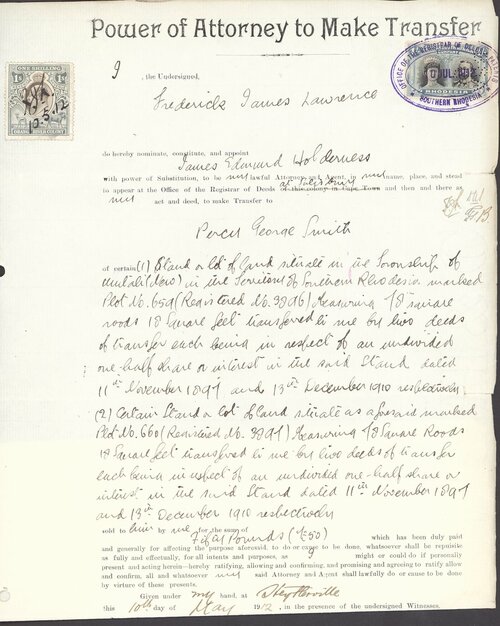 Power of Attorney to Make Transfer
ONE SHILLING
1s 1s
10.5.12
ORANGE RIVER COLONY
OFFICE OF THE REGISTRAR OF DEEDS
RHODESIA
SOUTHERN RHODESIA
I, the Undersigned,
Frederick James Lawrence
do hereby nominate, constitute, and appoint
James Edmund Holderness
with power of Substitution, to be my lawful Attorney and Agent, in my name, place, and stead
at Salisbury
to appear at the Office of the Registrar of Deeds of this colony in Cape Town and then and there as
my act and deed, to make Transfer to
Percy George Smith
of certain (1) Stand or lot of land situate in the Township of
Umtali (New) in the Territory of Southern Rhodesia marked
Plot No. 659 (Registered No. 3896) Measuring 78 square
roods 18 Square feet transferred to me by two deeds
of transfer each being in respect of an undivided
one half share or interest in the said Stand dated
11th November 1897 and 13th December 1910 respectively
(2) Certain Stand or lot of land situate as aforesaid marked
Plot No. 660 (Registered No. 3897) Measuring 78 Square Roods
18 Square feet transferred to me by two deeds of transfer
each being in respect of an undivided one-half share or
interest in the said Stand dated 11th November 1897
and 13th December 1910 respectively
sold to him by me for the sum of
Fifty Pounds (£50) which has been duly paid
and generally for affecting the purpose aforesaid, to do or cause to be done, whatsoever shall be requisite
as fully and effectually, for all intents and purposes, as I might or could do if personally
present and acting herein—hereby ratifying, allowing and confirming, and promising and agreeing to ratify allow
and confirm, all and whatsoever my said Attorney and Agent shall lawfully do or cause to be done
by virtue of these presents.
Given under my hand, at Heytherville
this 10th day of May 1912, in the presence of the undersigned Witnesses.